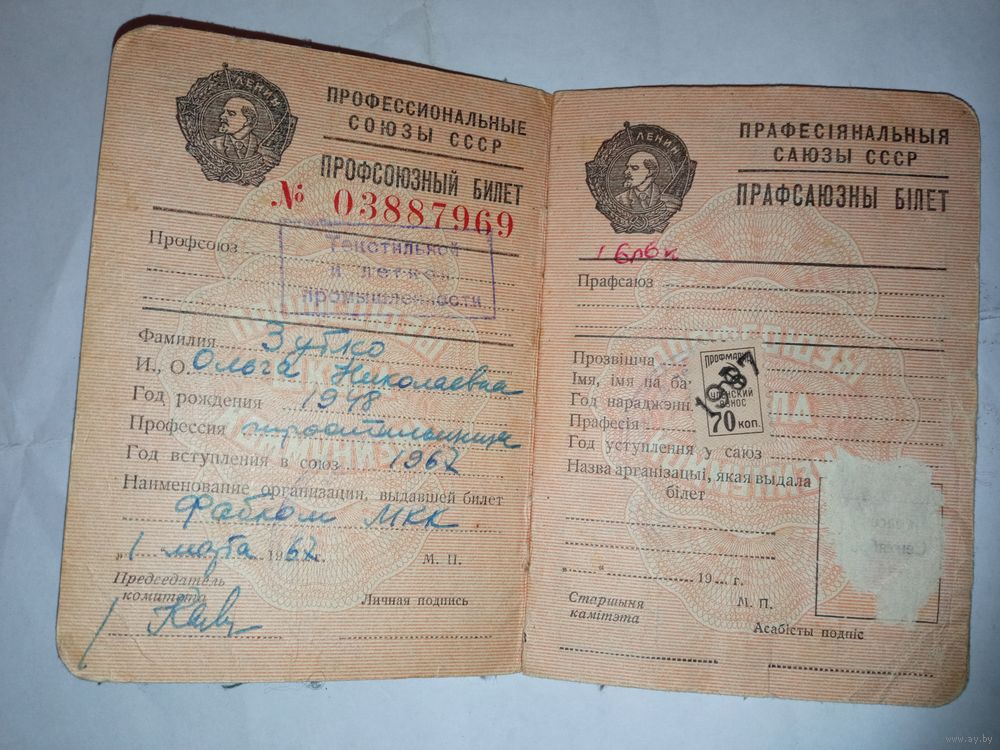 ЛЕНИН
ПРОФЕССИОНАЛЬНЫЕ
СОЮЗЫ СССР
ПРОФСОЮЗНЫЙ БИЛЕТ
№ 03887969
Профсоюз
Текстильной
и легкой
промышленности
Фамилия Зубко
И., О. Ольга Николаевна
Год рождения 1948
Профессия
Год вступления в союз 1967
Наименование организации, выдавшей билет
Фабком МКК
„1 марта 1967г. М. П.
Председатель
комитета
Личная подпись
ЛЕНИН
ПРАФЕСІЯНАЛЬНЫЯ
САЮЗЫ СССР
ПРАФСАЮЗНЫ БІЛЕТ
Прафсаюз
Прозвішча
Імя, імя па ба
Год нараджэнн
Прафесія
Год уступлення у саюз
Назва арганізацыі, якая выдала
білет
ПРОФМАРКА
ЧЛЕНСКИЙ
ВЗНОС
70 КОП.
1987
„ “ 19 г.
М. П.
Старшыня
камітэта
Асабісты подпіс
www.ay.by